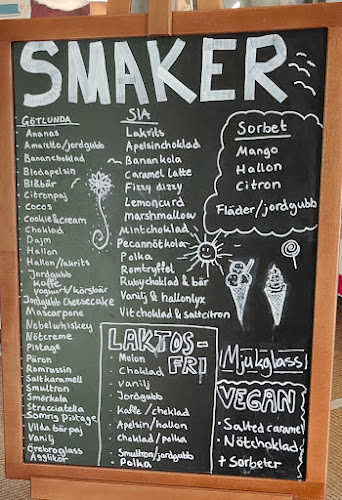 SMAKER
GÖTLUNDA
Ananas
Amaretto/jordgubb
Bananchoklad
Blodapelsin
Blåbär
Citronpaj
Cocos
Cookie&cream
Choklad
Dajm
Hallon
Hallon/lakrits
Jordgubb
Kaffe
Yoghurt/körsbär
Jordgubb Cheesecake
Mascarpone
Nobelwhiskey
Nötcreme
Pistage
Päron
Romrussin
Saltkaramell
Smultron
Smörkola
Stracciatella
Somrig pistage
Vilda bärpaj
Vanilj
Örebroglass
Ägglikör
SIA
Lakrits
Apelsinchoklad
Banankola
Caramel latte
Fizzy dizzy
Lemoncurd
marshmallow
Mintchoklad
Pecannötkola
Polka
Romtryffel
Rubychoklad & bär
Vanilj & hallonlyx
Vit choklad & saltcitron
LAKTOS-
FRI
- Melon
- Choklad
- Vanilj
- Jordgubb
- Kaffe/choklad
- Apelsin/hallon
- Choklad/polka
- Smultron/jordgubb
- Polka
Sorbet
Mango
Hallon
Citron
Fläder/jordgubb
Mjukglass
VEGAN
• Salted caramel
• Nötchoklad
+ Sorbeter